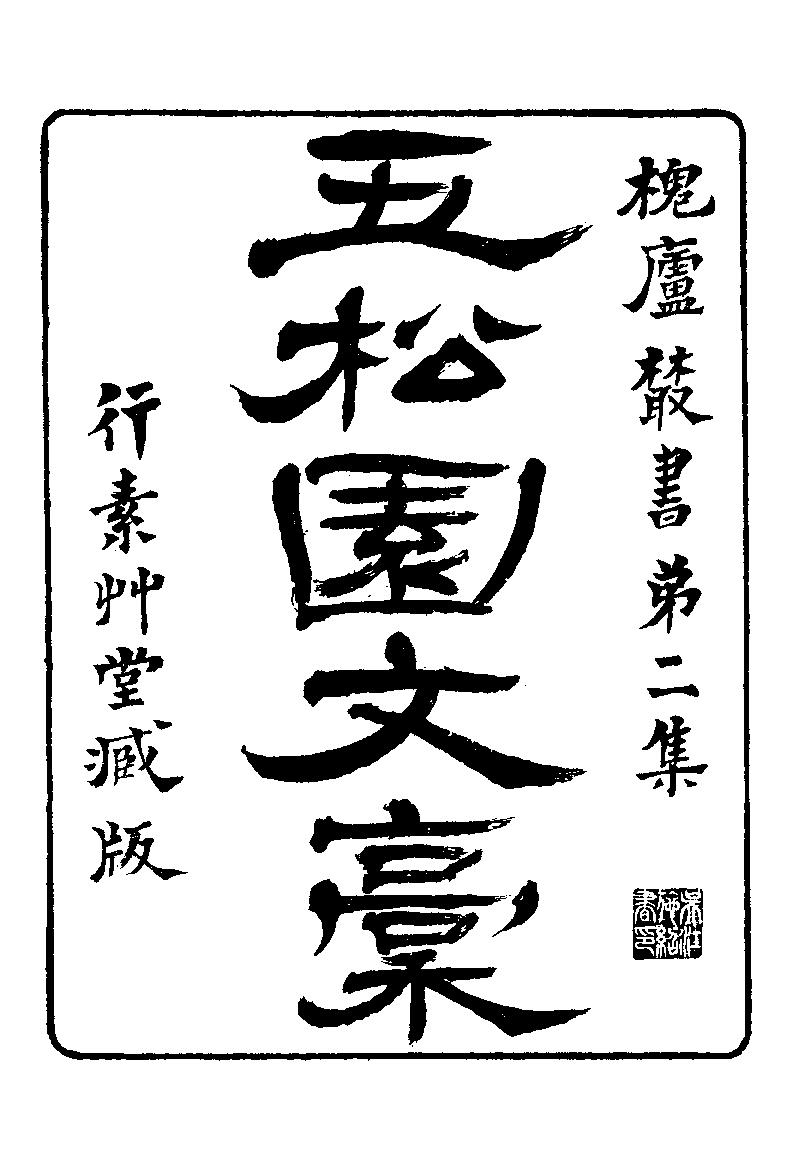 槐廬叢書弟二集
五松園文稾
行素艸堂臧版